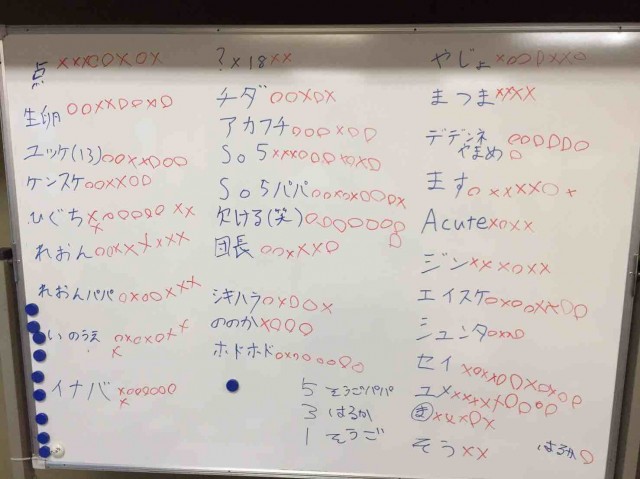 点 xxx○○x○x
生卵 ○○xx○○x○
ユッケ(13)○○xx○○○
ケンスケ○○xx○○
ひぐち x x○○○○○ x x
れおん○○xx xxxx
れおんパパ○x○○xxx
いのうえ ○x○x○xx x
イナバ x○○○○○ x
?x18xx
チダ ○○x○x
アカフチ○○○x○○
So5xxx○○○xx○
So5パパ○○x○x○○○x
欠ける(笑)○○○○○○○○
団長○○xxx○
シキハラ○x○○x
ののか x○○○
ホドホド○x○○○○○
5 そうごパパ
3 はるか
1 そうご
やじょ x○○○xx○
まつま xxxx
デデンネ やまめ ○○○○○○ ○
ます○xxxx○x
Acute x○xx
ジン xxx○xx
エイスケ○x○○xx○○
シュンタ○x○
セイ x○xx○○x○x○○
ユメ xxxxx○○○○
ま xxx○x
そう xx
はるか○